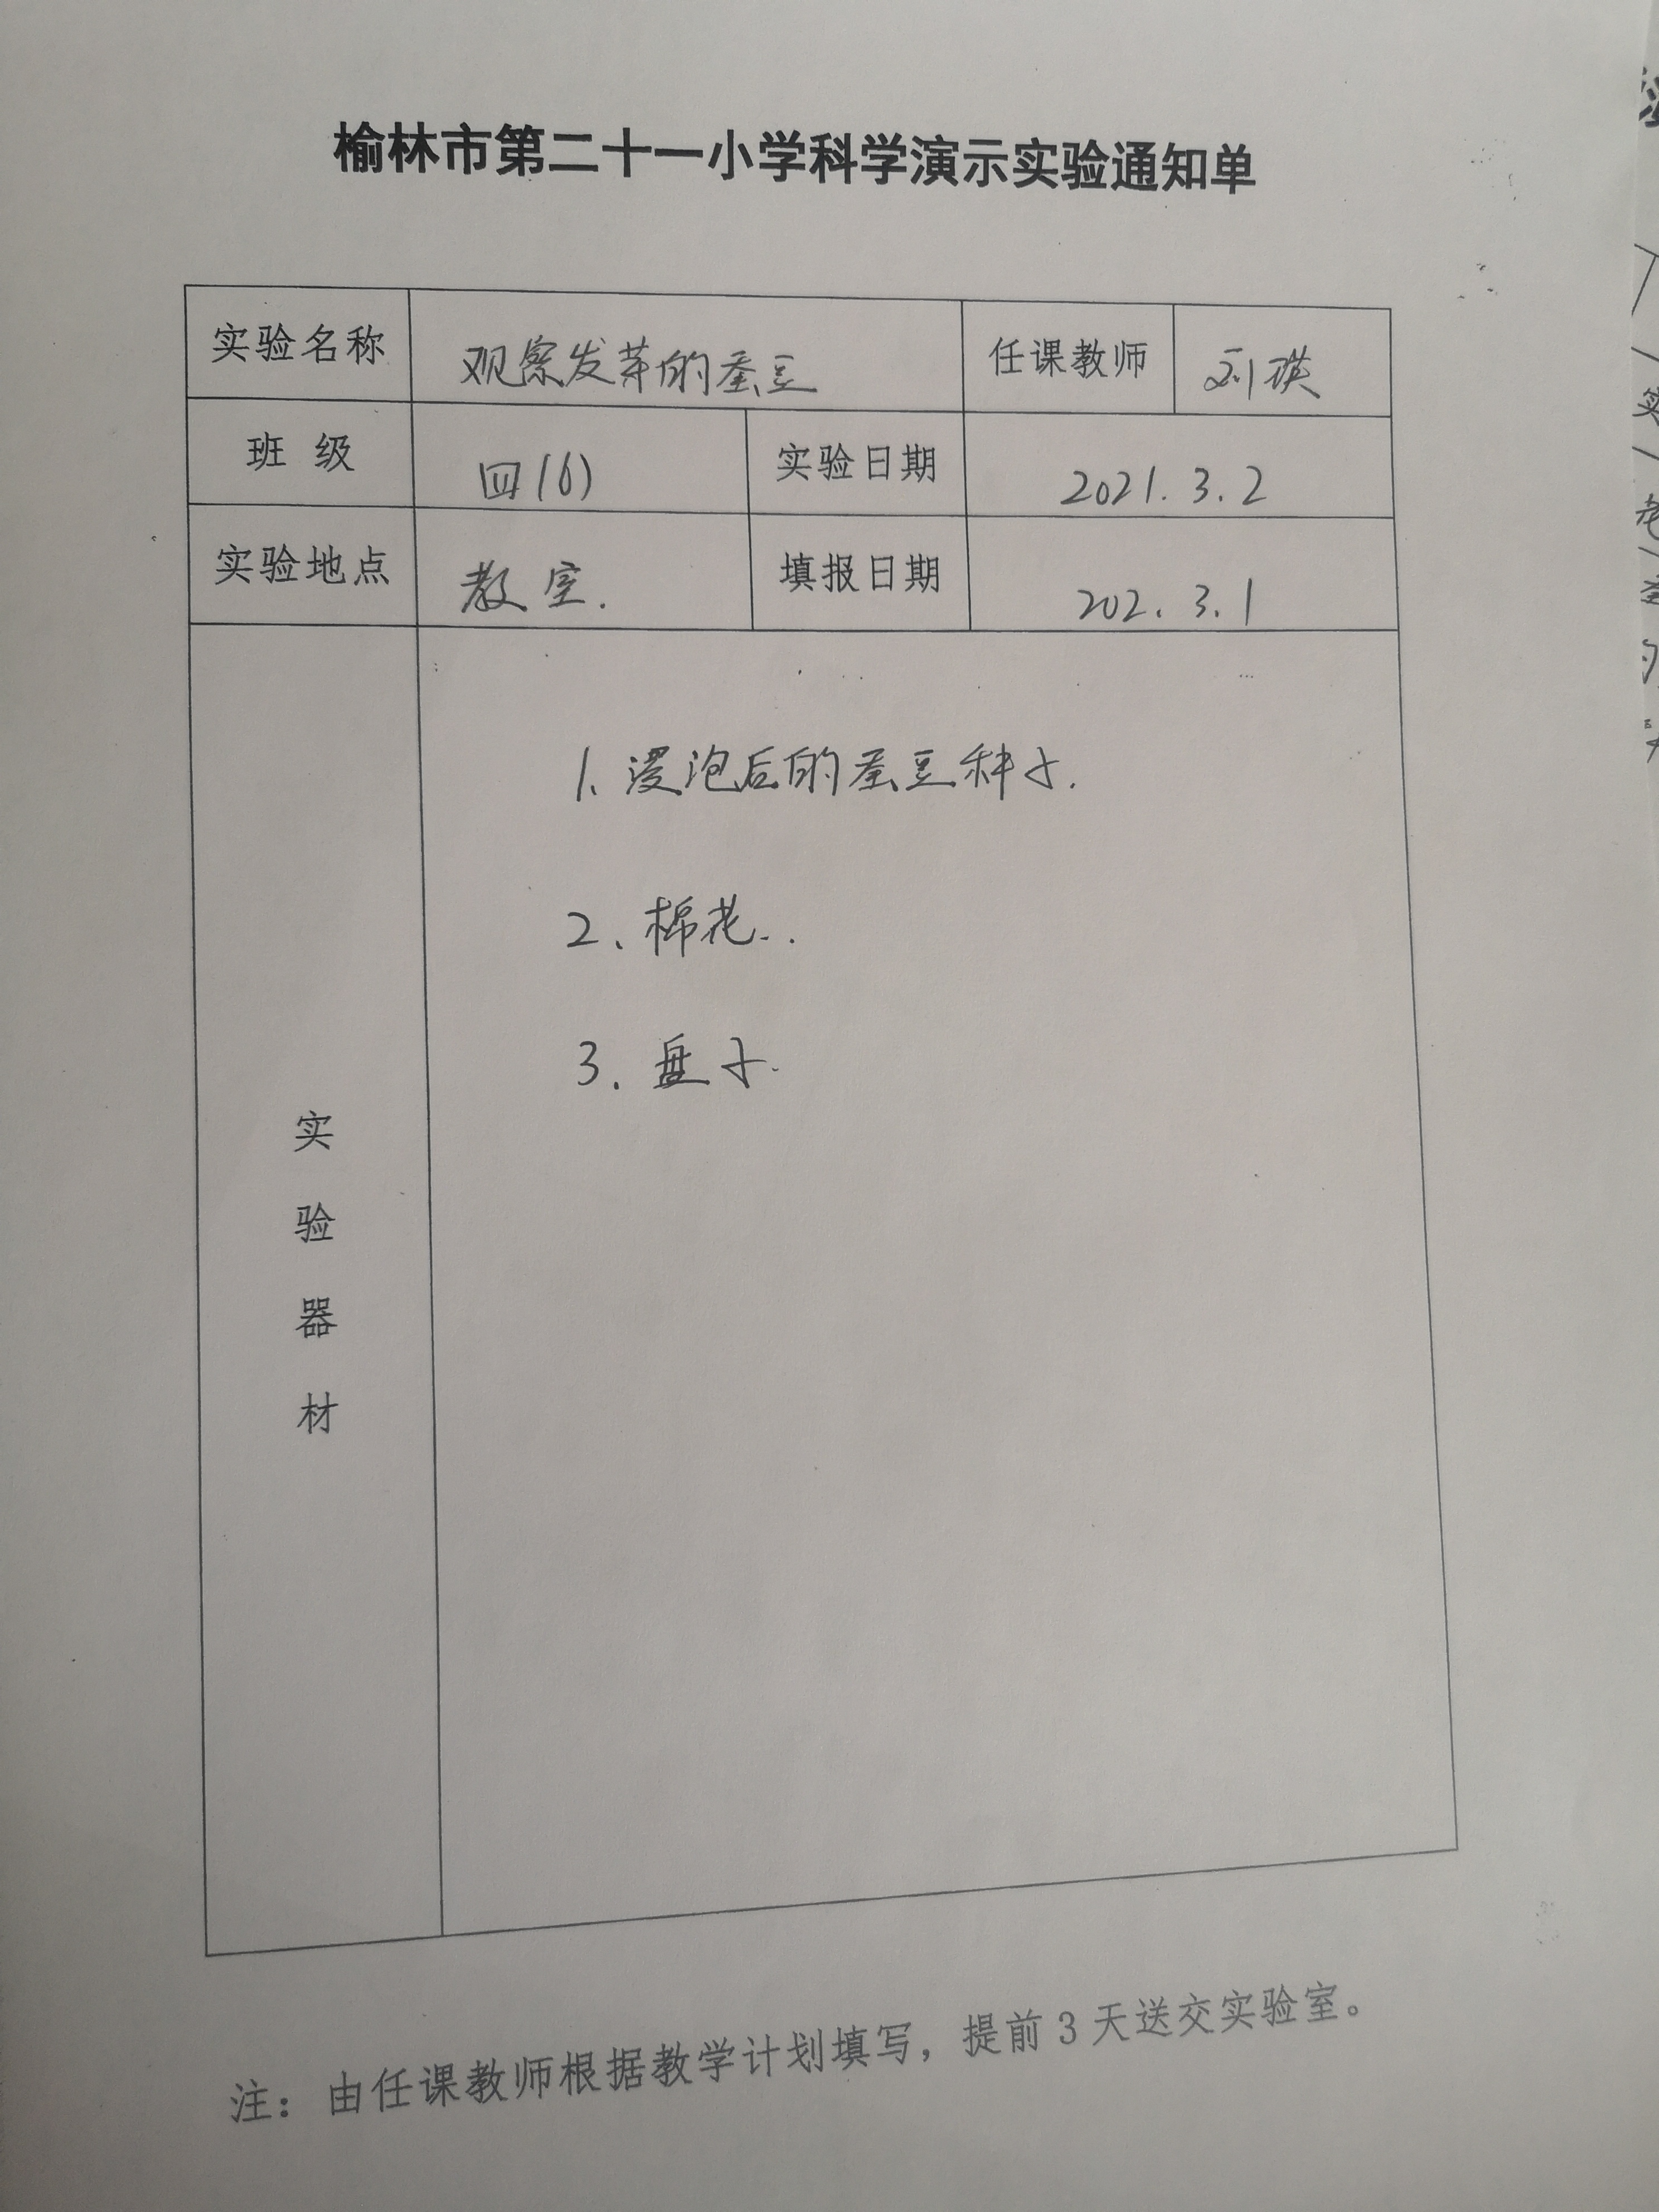 榆林市第二十一小学科学演示实验通知单
实验名称 观察发芽的蚕豆 任课教师 刘瑛
班 级 四(6) 实验日期 2021.3.2
实验地点 教室. 填报日期 202.3.1
实验器材
1、浸泡后的蚕豆种子.
2、棉花..
3.盘子.
注：由任课教师根据教学计划填写，提前3天送交实验室。